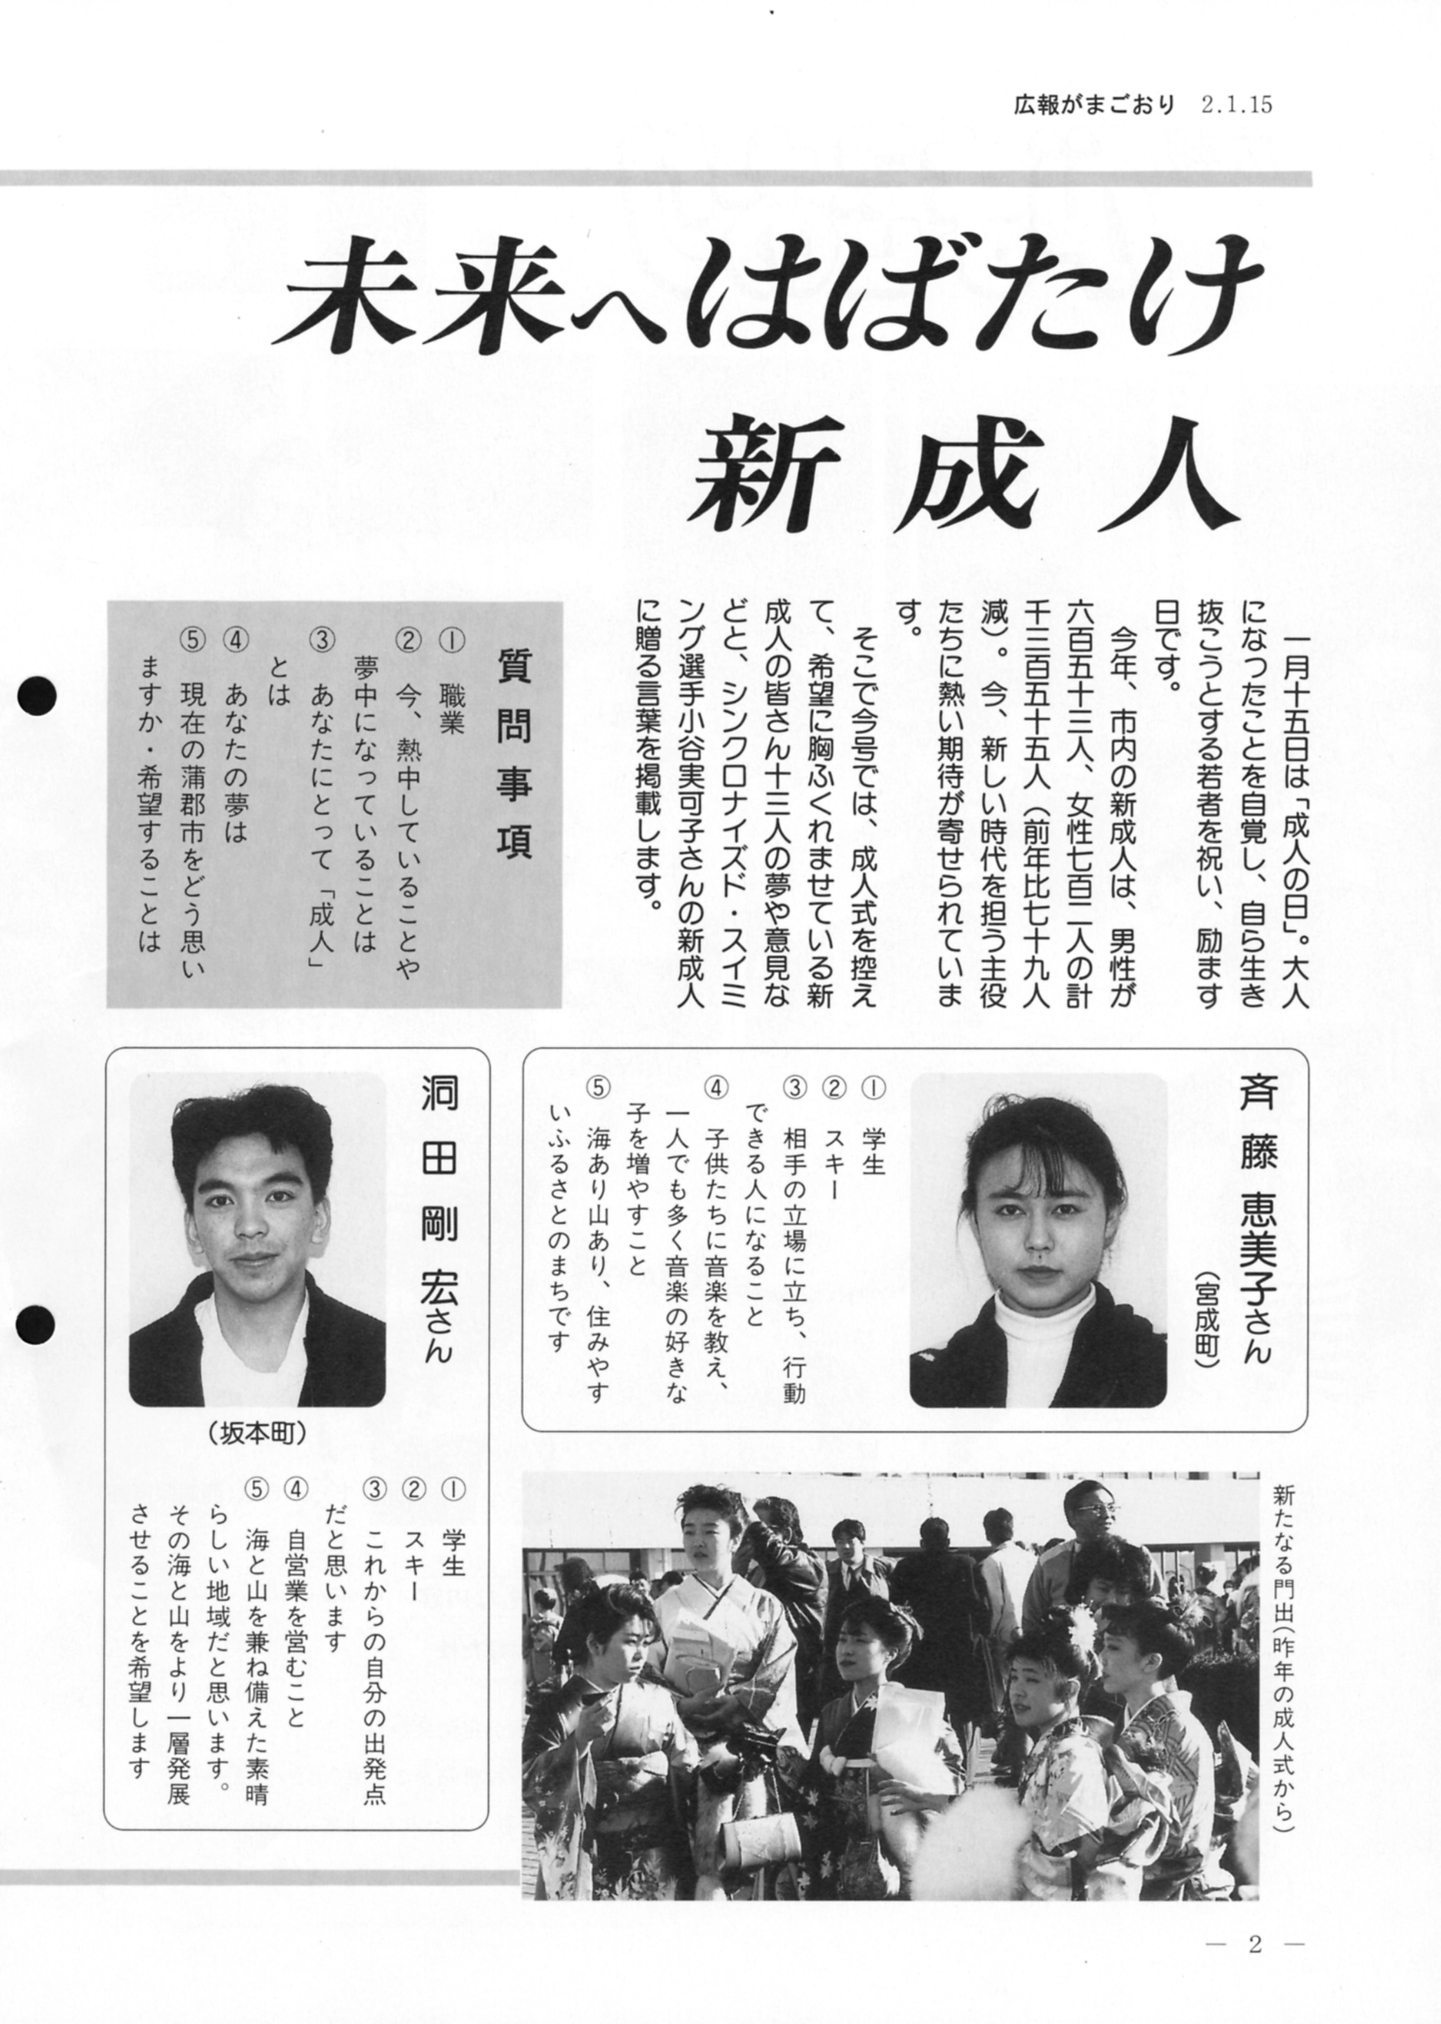 広報がまごおり 2.1.15
未来へはばたけ
新成人
一月十五日は「成人の日」。大人
になったことを自覚し、自ら生き
抜こうとする若者を祝い、励ます
日です。
今年、市内の新成人は、男性が
六百五十三人、女性七百二人の計
千三百五十五人（前年比七十九人
減）。今、新しい時代を担う主役
たちに熱い期待が寄せられていま
す。
そこで今号では、成人式を控え
て、希望に胸ふくれませている新
成人の皆さん十三人の夢や意見な
どと、シンクロナイズド・スイミ
ング選手小谷実可子さんの新成人
に贈る言葉を掲載します。
質問事項
① 職業
② 今、熱中していることや
夢中になっていることは
③ あなたにとって「成人」
とは
④ あなたの夢は
⑤ 現在の蒲郡市をどう思い
ますか・希望することは
斉藤恵美子さん
（宮成町）
① 学生
② スキー
③ 相手の立場に立ち、行動
できる人になること
④ 子供たちに音楽を教え、
一人でも多く音楽の好きな
子を増やすこと
⑤ 海あり山あり、住みやす
いふるさとのまちです
洞田剛宏さん
（坂本町）
① 学生
② スキー
③ これからの自分の出発点
だと思います
④ 自営業を営むこと
⑤ 海と山を兼ね備えた素晴
らしい地域だと思います。
その海と山をより一層発展
させることを希望します
新たなる門出（昨年の成人式から）
— 2 —